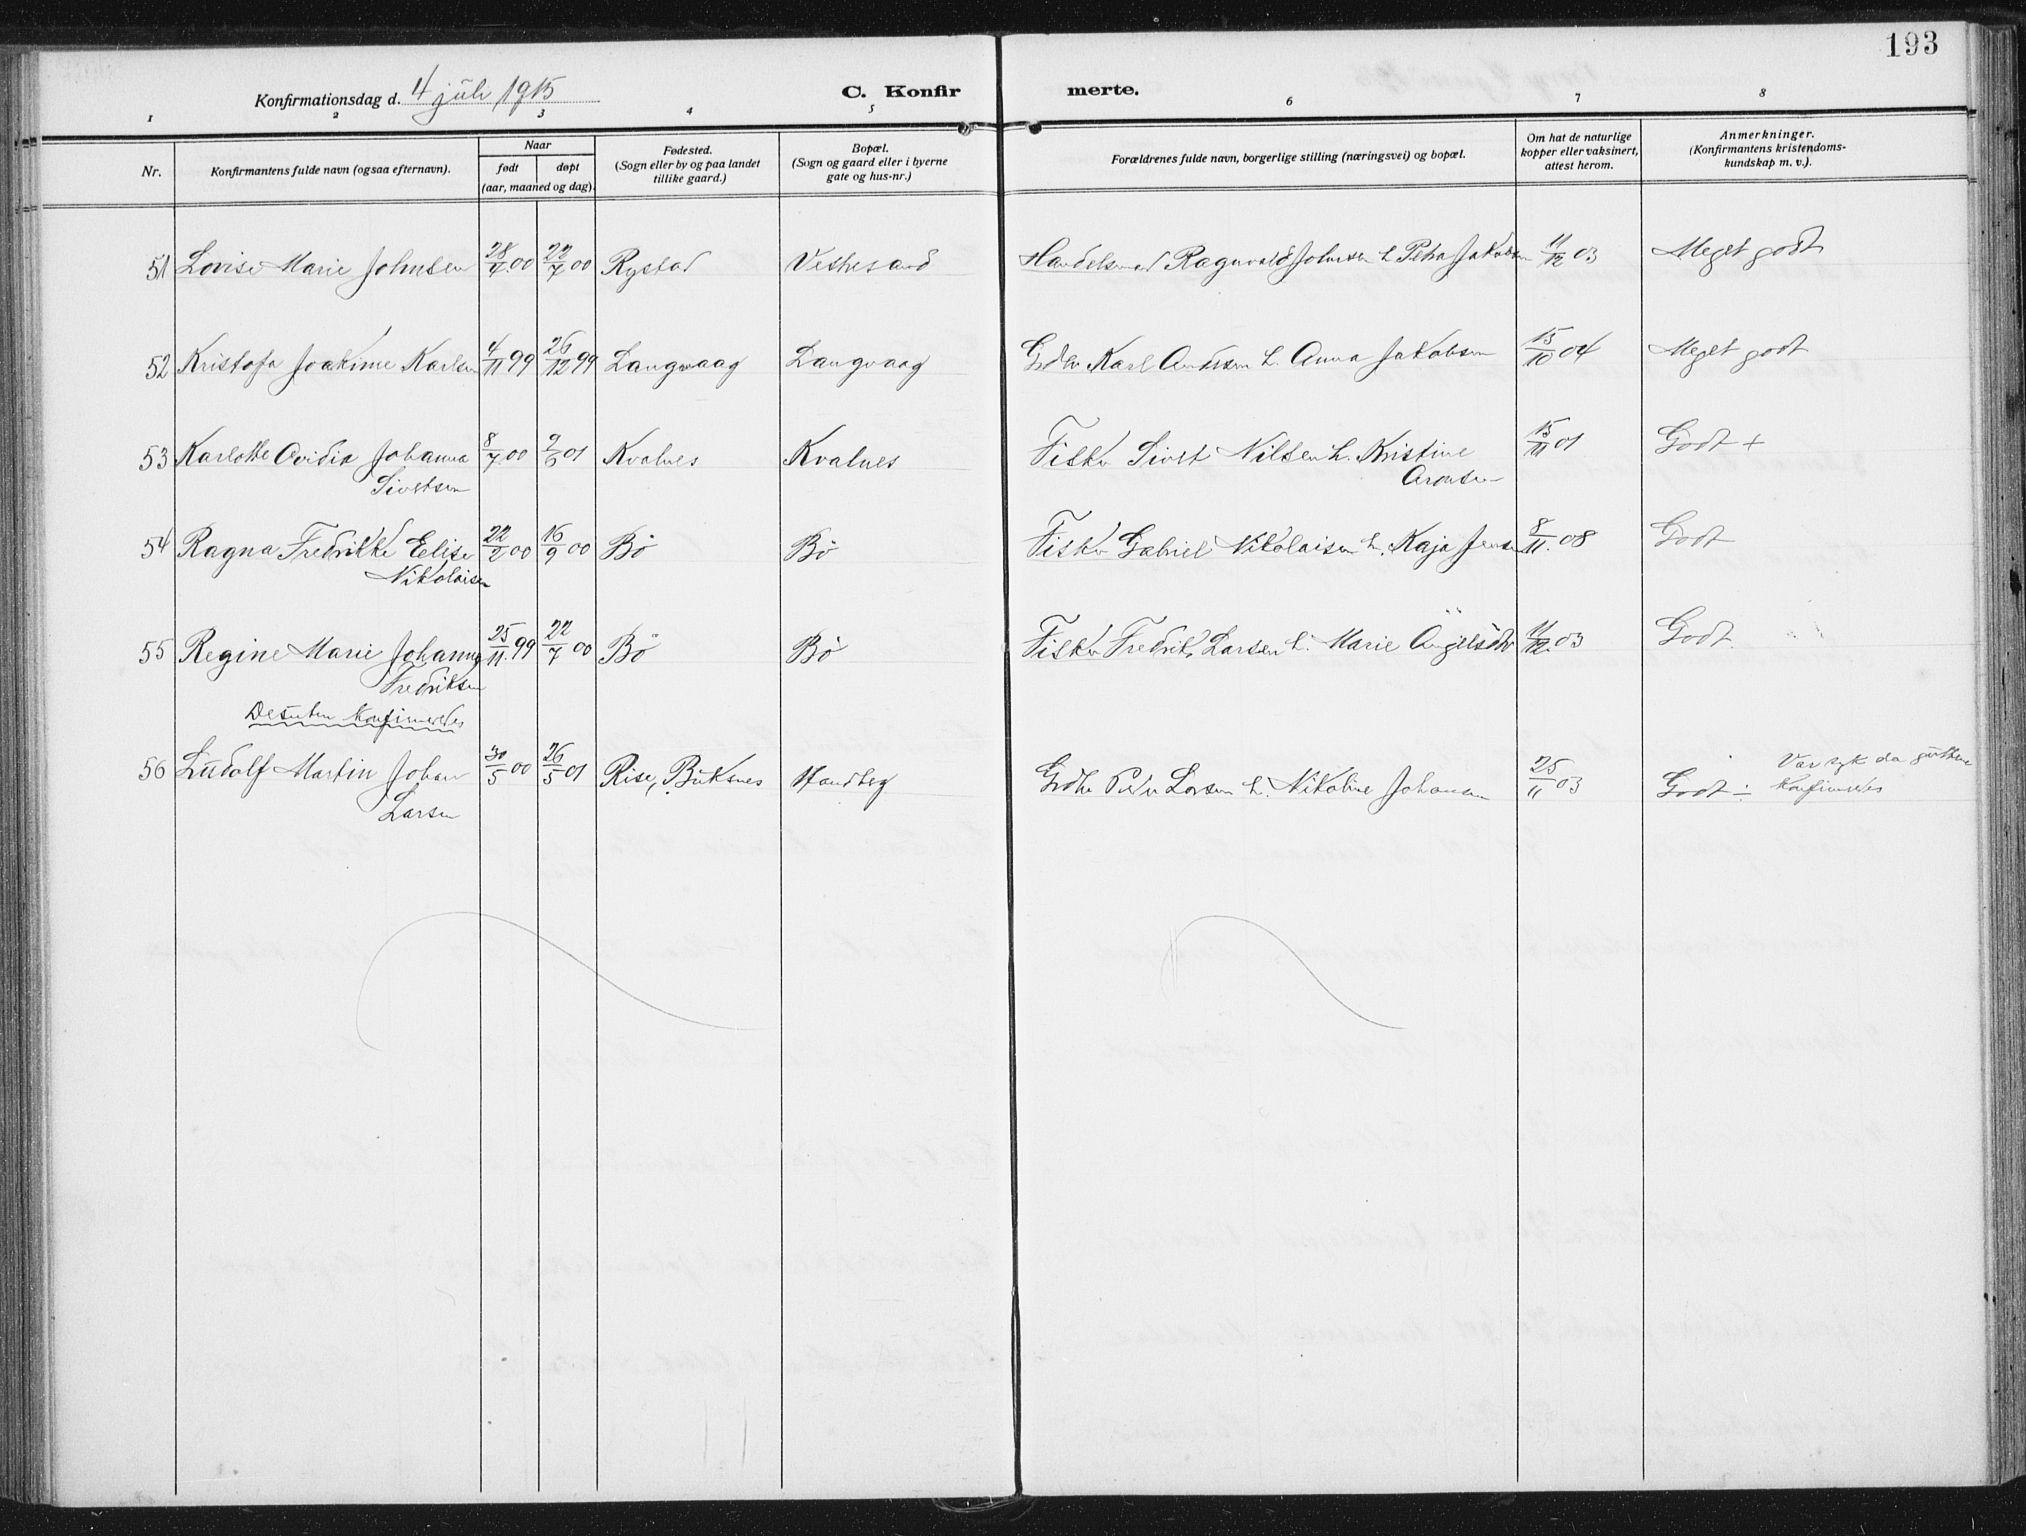 193
Konfirmationsdag d. 4 juli 1915 C. Konfir merte.
1 2 3 4 5 6 7 8
Nr. Konfirmantens fulde navn (ogsaa efternavn). Naar født døpt (aar, maaned og dag). Fødested. (Sogn eller by og paa landet tillike gaard.) Bopæl. (Sogn og gaard eller i byerne gate og hus-nr.) Forældrenes fulde navn, borgerlige stilling (næringsvei) og bopæl. Om hat de naturlige kopper eller vaksinert, attest herom. Anmerkninger. (Konfirmantens kristendoms-kundskap m. v.).
51 Lovise Marie Johnsen 28/4 00 22/7 00 Rystad Vestresand Handelsmand Ragnvald Johnsen h. Petra Jakobsen 11/12 03 Meget godt
52 Kristofa Joakime Karlsen 4/11 99 26/12 99 Langvaag Langvaag Grdbr Karl h. Anna Jakobsen 15/10 04 Meget godt
53 Karlotte Ovidia Johanna 8/7 00 9/6 01 Kvalnes Kvalnes Fisker Sivert Nilsen h. Kristine 15/11 01 Godt +
Sivertsen Aronsen
54 Ragna Fredrikke Elise 22/2 00 16/9 00 Bö Bö Fisker Gabriel Nikolaisen h. Kaja Jensen 8/11. 08 Godt
Nikolaisen
55 Regine Marie Johanna 25/11. 99 22/7 00 Bö Bö Fisker Fredrik Larsen h. Marie 11/12. 03 Godt.
Fredriksen
Desuten konfirmeredes
56 Ludolf Martin Johan 30/5 00 26/5 01 Rise, Buksnes Handberg Grdbr Peder Larsen h. Nikoline Johansen 25/11 03 Godt ÷ Var syk da guttene
Larsen konfirmeredes